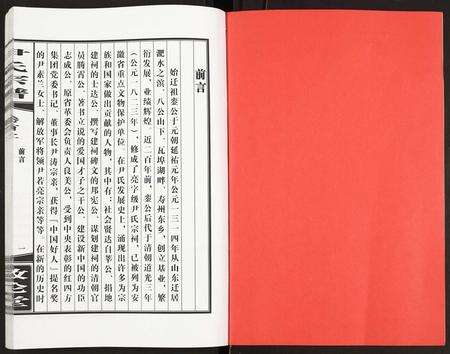 前言
始迁祖奎公于元朝延祐元年公元一三一四年从山东迁居
淝水之滨、八公山下、瓦埠湖畔、寿州东乡，创立基业，繁
衍发展，业绩辉煌。近二百年前，奎公后代于清朝道光三年
（公元一八二三年），修成了亮字级尹氏宗祠，已被列为安
徽省重点文物保护单位。在尹氏发展史上，涌现出许多为宗
族和国家做出贡献的人物，其中有：社会贤达自莘公、捐地
建祠的士达公、撰写建祠碑文的邦宪公、谋划建祠的清朝官
员腾霄公、著书立说的爱国才子之干公、建设新中国的功臣
志成公、原省革委会负责人良美公、受到中央表彰的红四方
集团党委书记、董事长尹涛宗亲、获得「中国好人」提名奖
的尹素兰女士、解放军将领尹若亮宗亲等等。在新的历史时
尹氏宗谱
卷首二
前言
一
敦伦堂